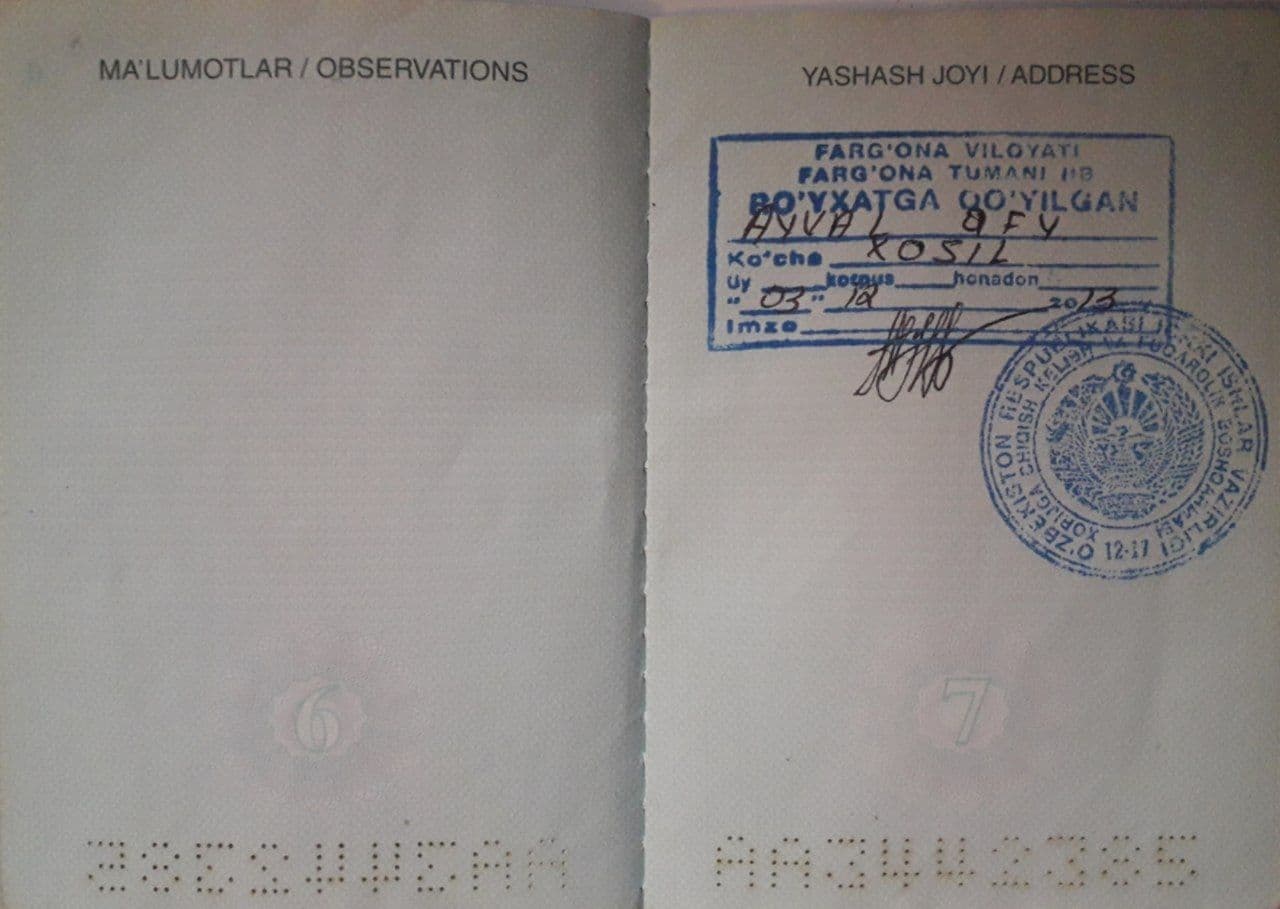 MA'LUMOTLAR / OBSERVATIONS
6
YASHASH JOYI / ADDRESS
7
FARG'ONA VILOYATI
FARG'ONA TUMANI IIB
RO'YXATGA QO'YILGAN
AYVAL QFY
Ko'cha XOSIL
Uy korpus honadon
"03" 12 2013
Imzo
O'ZBEKISTON RESPUBLIKASI ICHKI ISHLAR VAZIRLIGI
XORIJGA CHIQISH KELISH VA FUQAROLIK BOSHQARMASI
12-17
7
AA3442385